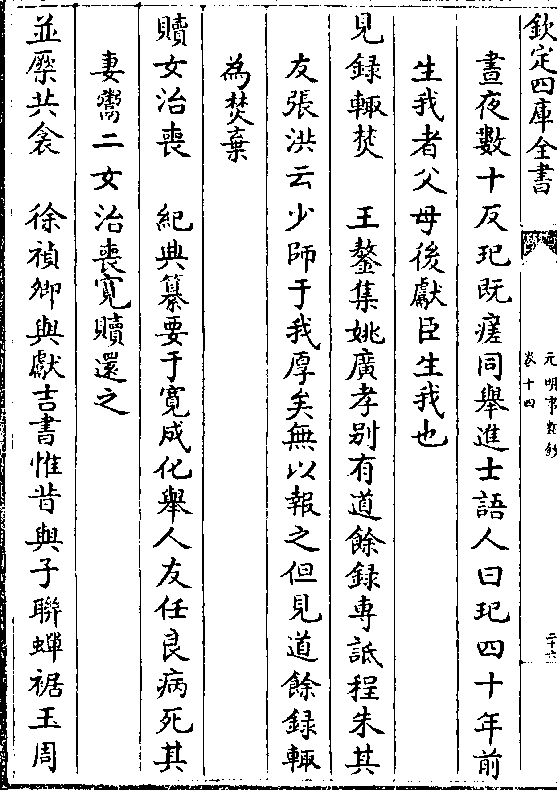 欽定四庫全書
元明事類鈔
卷十四
二十六
晝夜數十反玘既瘥同舉進士語人曰玘四十年前
生我者父母後獻臣生我也
見録輙焚　王鏊集姚廣孝别有道餘録専詆程朱其
友張洪云少師于我厚矣無以報之但見道餘録輙
為焚棄
贖女治喪　紀典纂要于寛成化舉人友任良病死其
妻鬻二女治喪寛贖還之
並縻共衾　徐禎卿與獻吉書惟昔與子聯蟬裾玉周